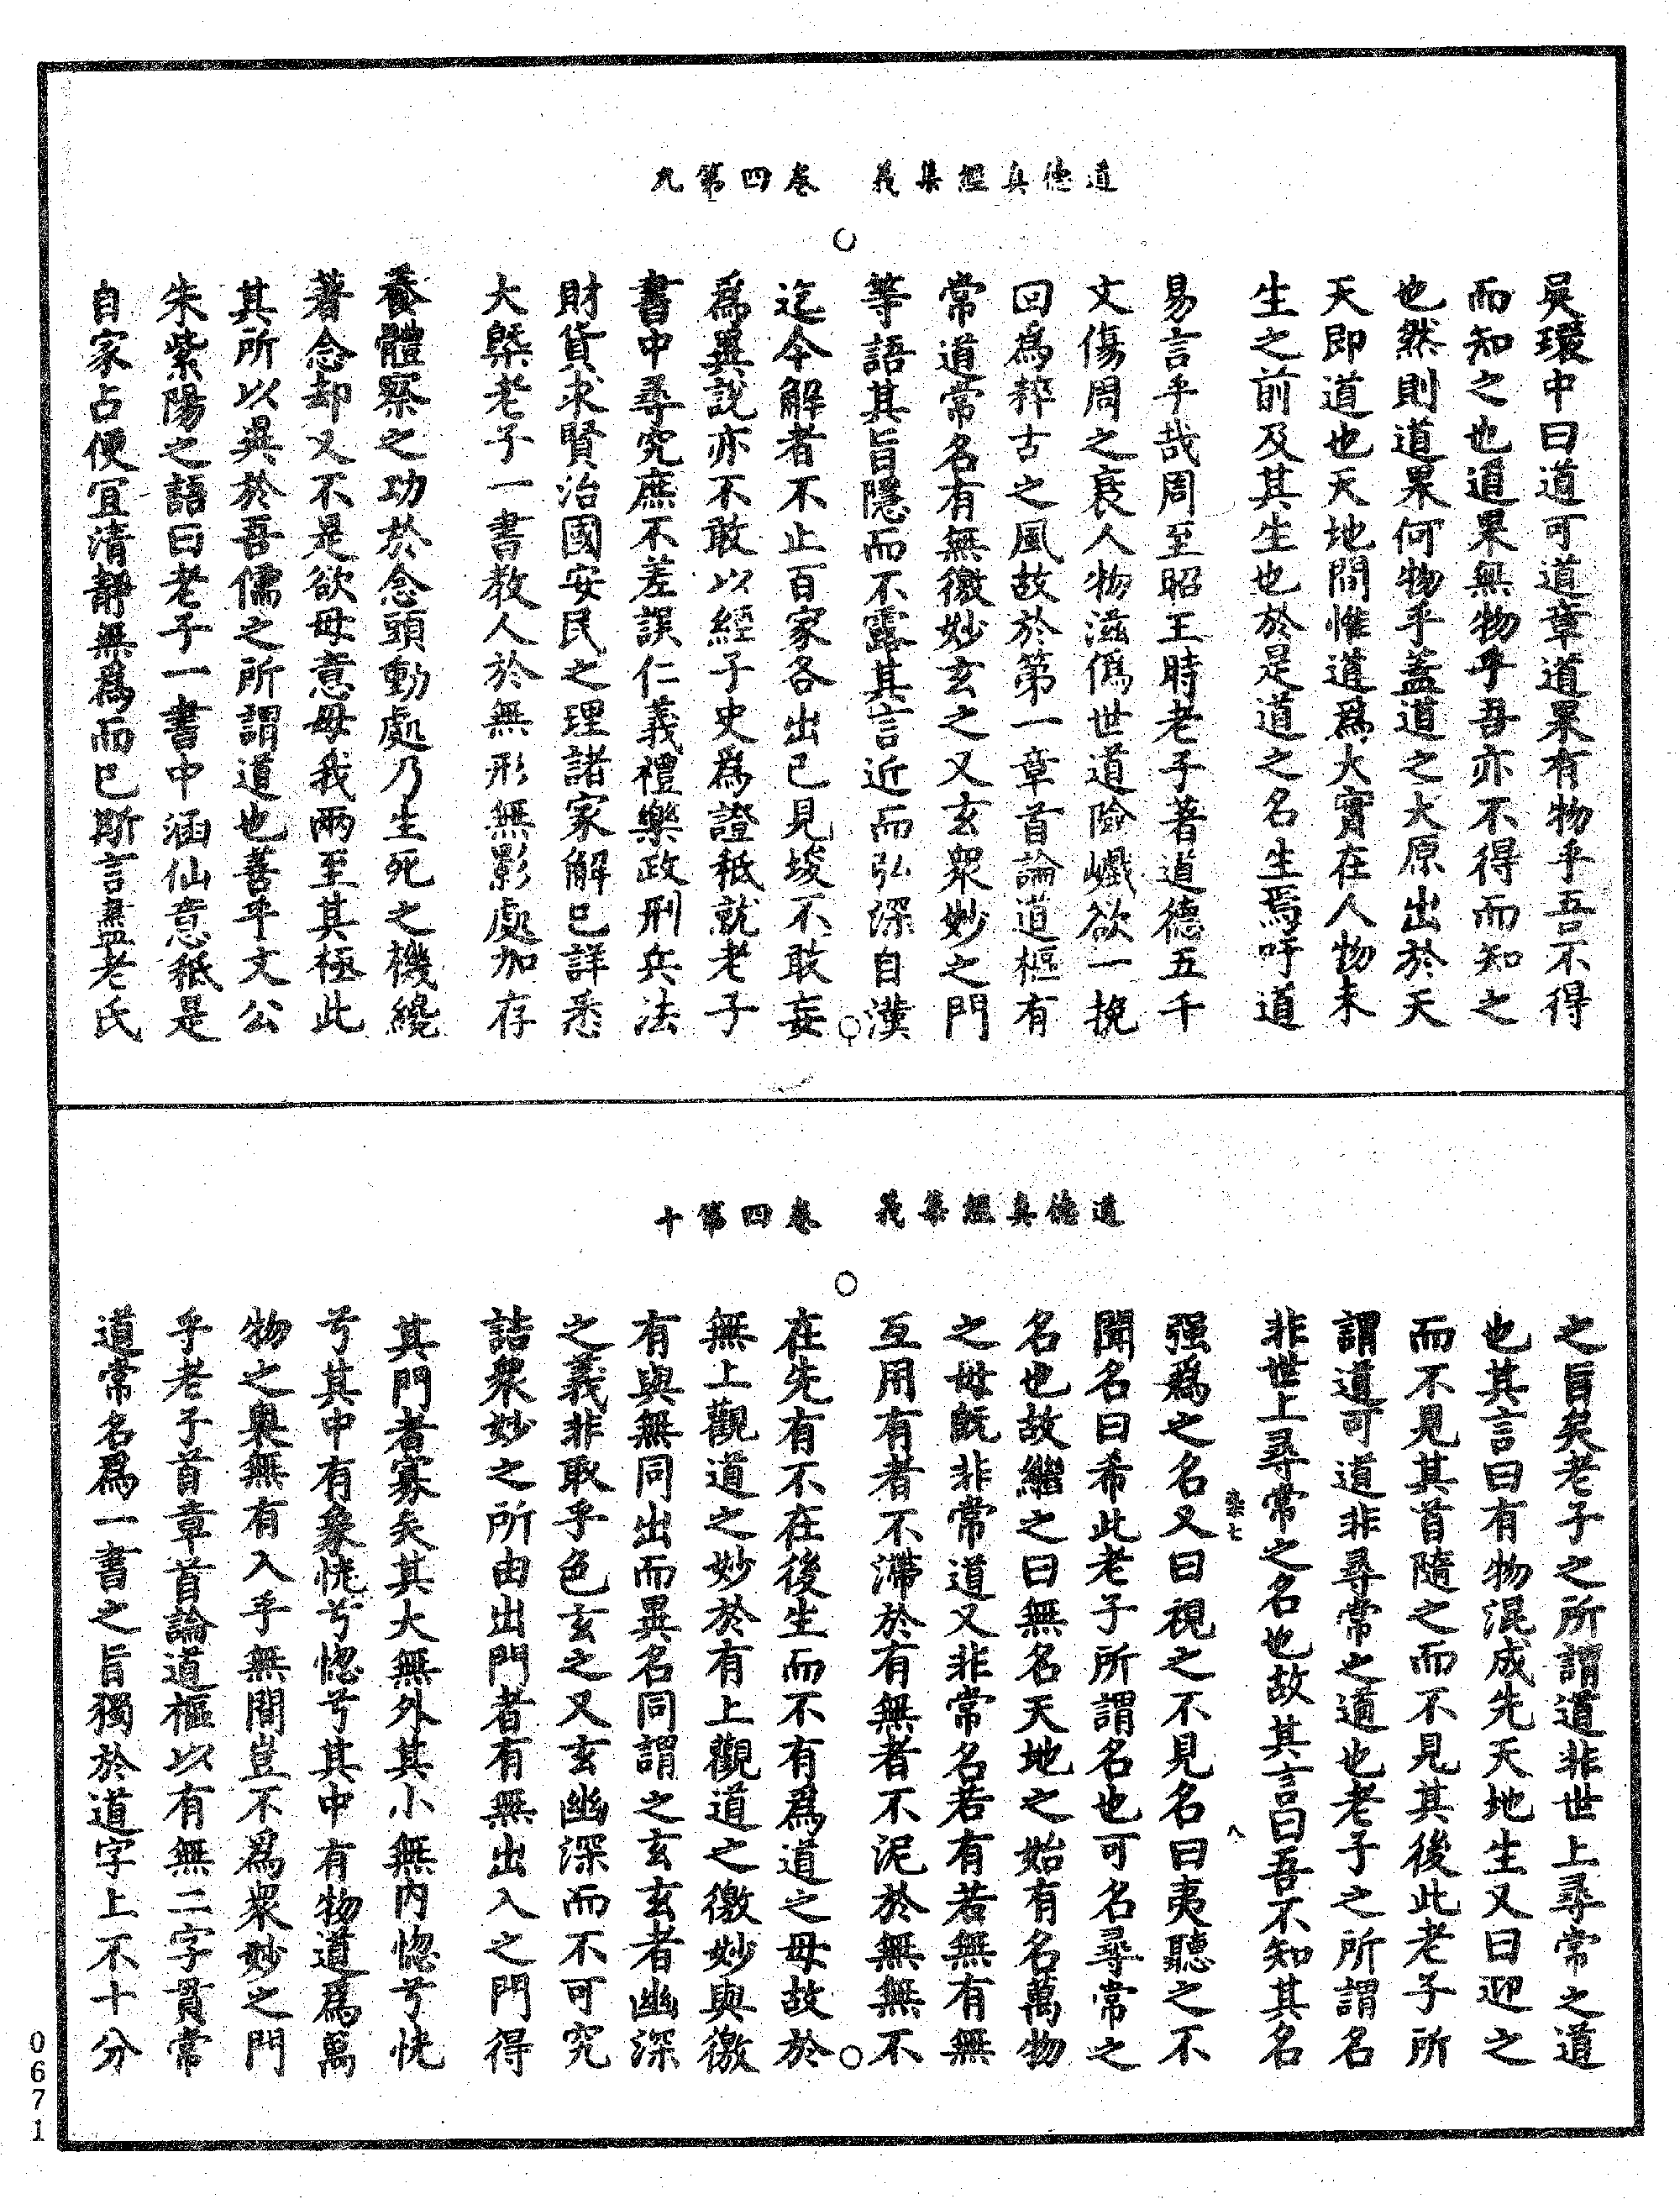 道德真經集義 卷四第九
吳環中曰道可道章道果有物乎吾不得
而知之也道果無物乎吾亦不得而知之
也然則道果何物乎蓋道之大原出於天
天即道也天地間惟道爲大實在人物未
生之前及其生也於是道之名生焉吁道
易言乎哉周至昭王時老子著道德五千
文傷周之衰人物滋僞世道險巇欲一挽
回爲粹古之風故於第一章首論道樞有
常道常名有無徼妙玄之又玄衆妙之門
等語其旨隱而不露其言近而弘深自漢
迄今解者不止百家各出已見埈不敢妄
爲異說亦不敢以經子史爲證秪就老子
書中尋究庶不差誤仁義禮樂政刑兵法
財貨求賢治國安民之理諸家解已詳悉
大槩老子一書教人於無形無影處加存
養體察之功於念頭動處乃生死之機纔
著念却又不是欲毋意毋我兩至其極此
其所以異於吾儒之所謂道也善乎文公
朱紫陽之語曰老子一書中涵仙意秪是
自家占便宜清靜無爲而已斯言盡老氏
道德真經集義 卷四第十
之旨矣老子之所謂道非世上尋常之道
也其言曰有物混成先天地生又曰迎之
而不見其首隨之而不見其後此老子所
謂道可道非尋常之道也老子之所謂名
非世上尋常之名也故其言曰吾不知其名
染七 八
强爲之名又曰視之不見名曰夷聽之不
聞名曰希此老子所謂名也可名尋常之
名也故繼之曰無名天地之始有名萬物
之母既非常道又非常名若有若無有無
互用有者不滯於有無者不泥於無無不
在先有不在後生而不有爲道之母故於
無上觀道之妙於有上觀道之徼妙與徼
有與無同出而異名同謂之玄玄者幽深
之義非取乎色玄之又玄幽深而不可究
詰衆妙之所由出門者有無出入之門得
其門者寡矣其大無外其小無內惚兮恍
兮其中有象恍兮惚兮其中有物道爲萬
物之奥無有入乎無間豈不爲衆妙之門
乎老子首章首論道樞以有無二字貫常
道常名爲一書之旨獨於道字上不十分
0671